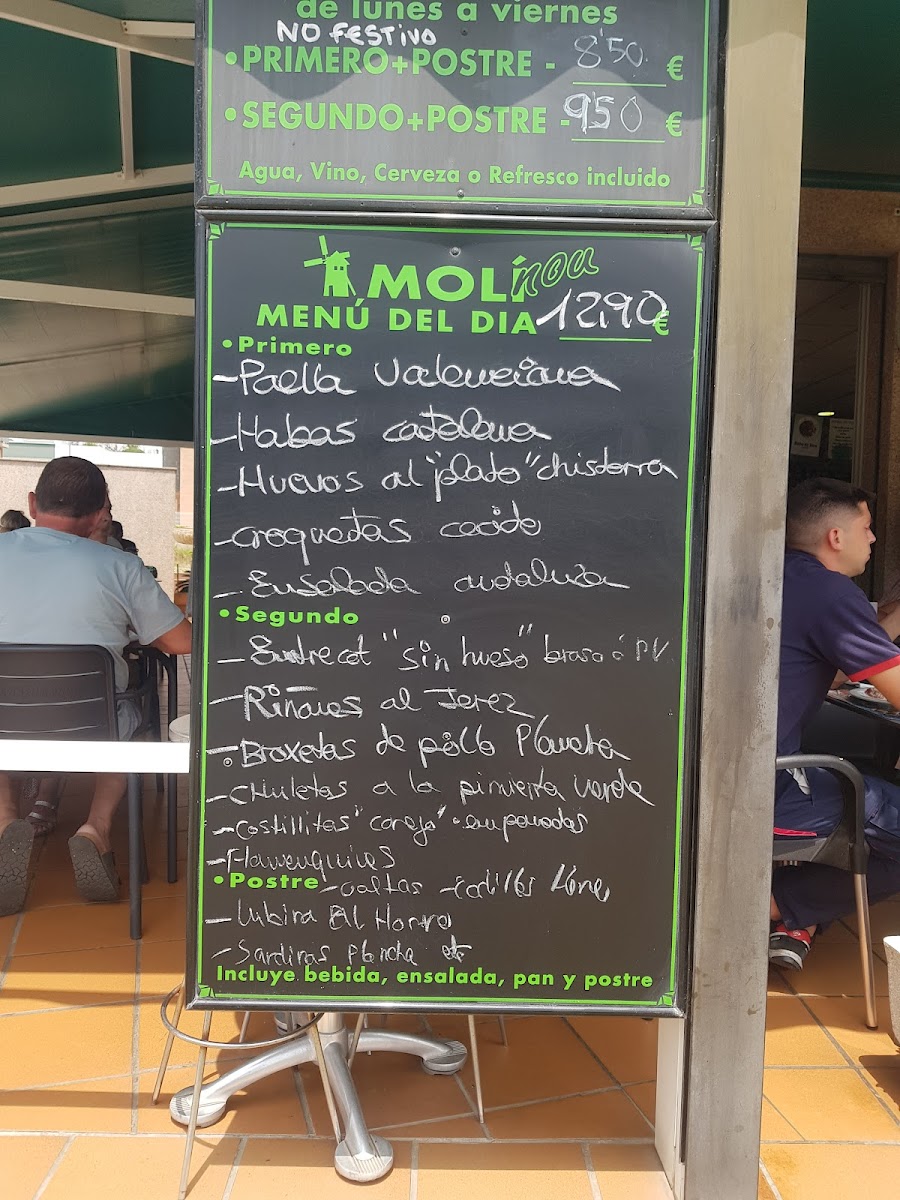 de lunes a viernes
NO FESTIVO
• PRIMERO+POSTRE - 8'50 €
• SEGUNDO+POSTRE - 9'50 €
Agua, Vino, Cerveza o Refresco incluido
MOLÍ nou
MENÚ DEL DIA 12,90 €
• Primero
- Paella Valenciana
- Habas catalana
- Huevos al "plato" chistorra
- Croquetas cocido
- Ensalada andaluza
• Segundo
- Entrecot "sin hueso" brasa ó PV
- Riñones al Jerez
- Broxetas de pollo Plancha
- Chuletas a la pimienta verde
- Costillitas "conejo" empanadas
- Flamenquines
• Postre - Galtas -
- Lubina Al Horno
- Sardinas Plancha etc
Incluye bebida, ensalada, pan y postre